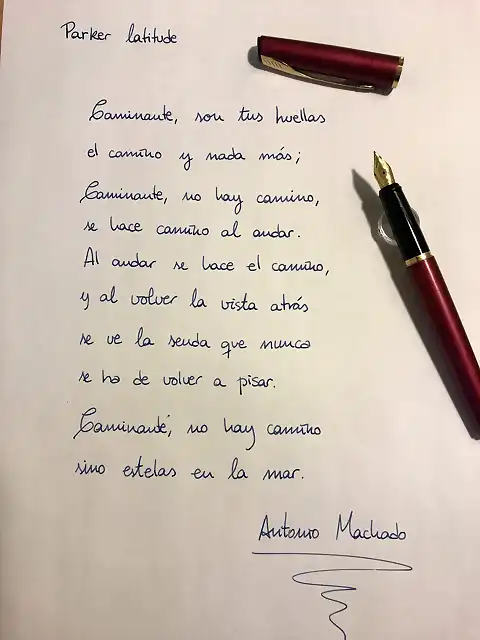 Parker latitude
Caminante, son tus huellas
el camino y nada más;
Caminante, no hay camino,
se hace camino al andar.
Al andar se hace el camino,
y al volver la vista atrás
se ve la senda que nunca
se ha de volver a pisar.
Caminante, no hay camino
sino estelas en la mar.
Antonio Machado